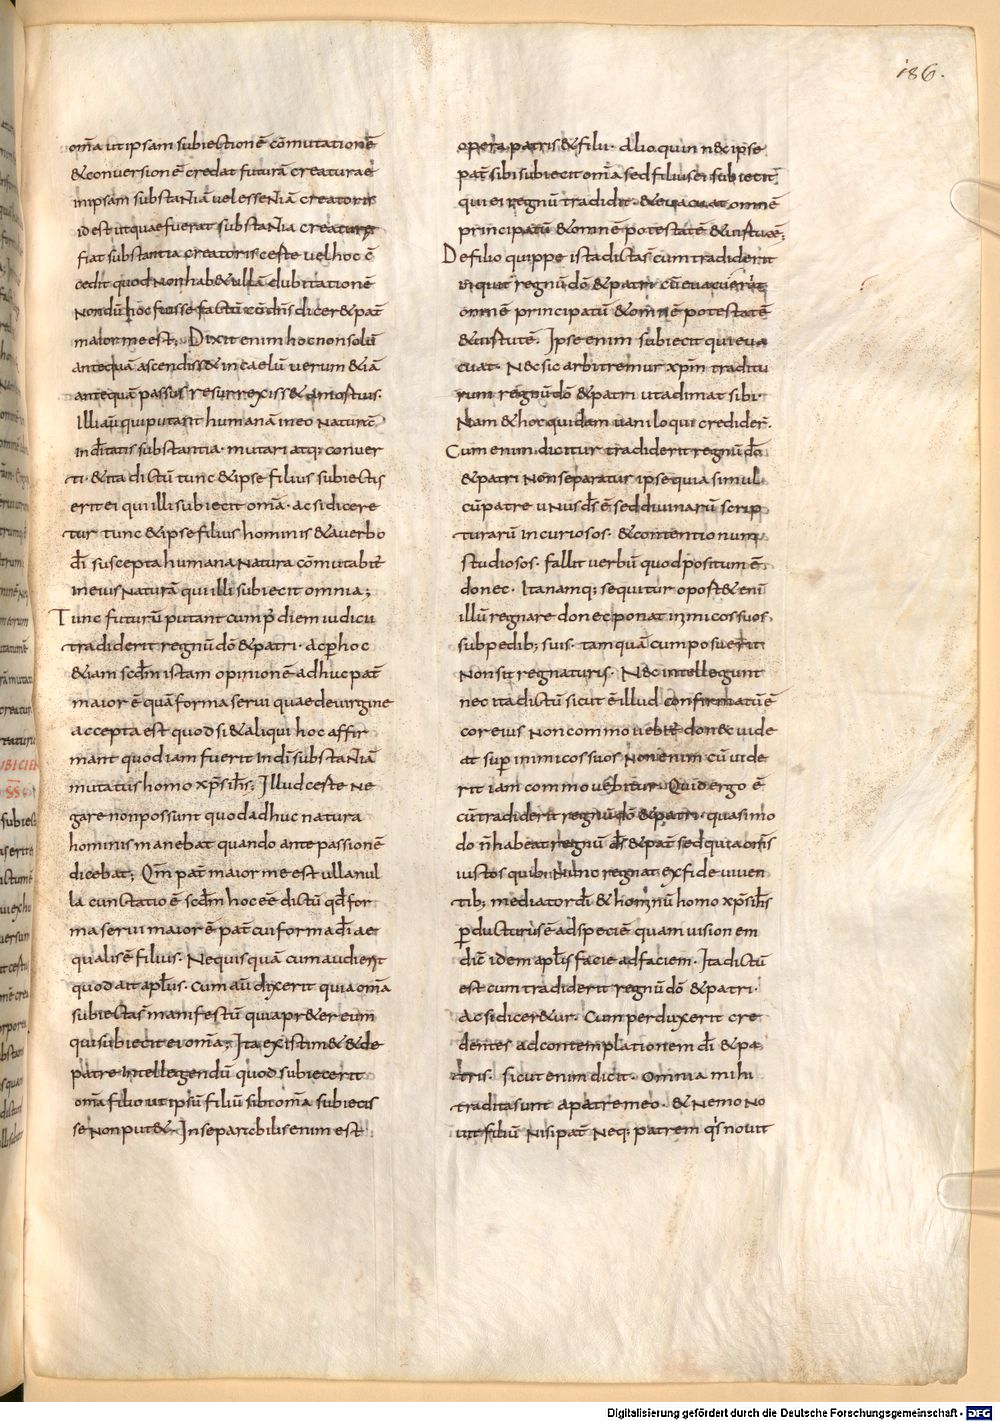 186.
om̄a ut ipsam subiectionē cōmutationē
& conversionē credat futurā creaturae
in ipsam substantiā vel essentiā creatoris
id est ut quae fuerat substantia creaturę
fiat substantia creatoris certe vel hoc c̄
cedit quod non hab& ullā dubitationē
nondū hoc fuisse factū cū dn̄s dicer& pat̄
maior me est; Dixit enim hoc non solū
antequā ascendiss& in caelū verum &iā
antequā passus resurrexiss& a mortuis.
Illi aū qui putant humanā in eo naturā
in dītatis substantia mutari atq; conver
ti. & ita dictū tunc & ipse filius subiectus
erit ei qui illi subiecit om̄a. ac si dicere
tur tunc & ipse filius hominis & a verbo
dī suscepta humana natura cōmutabit̄
in eius naturā qui illi subiecit omnia;
Tunc futurū putant cum p̄ diem iudicii
tradiderit regnū dō & patri. ac p̄ hoc
&iam scdm̄ istam opinionē adhuc pat̄
maior ē quā forma servi quae de virgine
accepta est quod si & aliqui hoc affir
mant quod iam fuerit in dī substantiā
mutatus homo xp̄s ih̄s; Illud certe ne
gare non possunt quod adhuc natura
hominis manebat quando ante passionē
dicebat; Qm̄ pat̄ maior me est ulla nul
la cunctatio ē scdm̄ hoc eē dictū qđ for
ma servi maior ē pat̄ cui forma dī ae
qualis ē filius. Nequisquā cum audierit
quod ait apl̄us. cum aū dixerit quia om̄a
subiecta s̄ manifestū quia pr&er eum
qui subiecit ei om̄a; Ita existim& & de
patre intellegendū quod subiecerit
om̄a filio ut ipsū filiū sibi om̄a subiecis
se non put&. Inseparabilis enim est
opera patris & filii. alioquin n& ipse
pat̄ sibi subiecit om̄a sed filius ei subiecit
qui ei regnū tradidit. & evacuat omnē
principatū & omnē potestatē & virtutē;
De filio quippe ista dicta s̄ cum tradiderit
inquit regnū dō & patri cū evacuerit
omnē principatū & omnē potestatē
& virtutē. Ipse enim subiecit qui eva
cuat. Nec sic arbitremur xpm̄ traditu
rum regnū dō & patri ut adimat sibi.
Nam & hoc quidam vaniloqui credider̄.
Cum enim dicitur tradiderit regnū dō
& patri non separatur ipse quia simul
cū patre unus ds̄ ē sed divinarū scrip
turarū incuriosos. & contentionum
studiosos. fallit verbū quod positum ē
donec. Ita namq; sequitur oport& enī
illū regnare donec ponat inimicos suos
sub pedib; suis. tamquā cum posuerit
non sit regnaturus. Nec intellegunt
nec ita dictū sicut ē illud confirmatū ē
cor eius non commovebit̄ donec vide
at sup̄ inimicos suos. Non enim cū vide
rit iam commovebitur. Quid ergo ē
cū tradiderit regnū dō & patri. quasi mo
do n̄ habeat regnū ds̄ & pat̄ sed quia om̄s
iustos quib; nunc regnat ex fide viven
tib; mediator dī & hominū homo xp̄s ih̄s
p̄ducturus ē ad speciē quam visionem
dic̄ idem apl̄s facie ad faciem. Ita dictū
est cum tradiderit regnū dō & patri.
Ac si dicer&ur. Cum perduxerit cre
dentes ad contemplationem dī & pa
tris. sicut enim dicit. Omnia mihi
tradita sunt a patre meo. & nemo no
vit filiū nisi pat̄ neq; patrem q's novit
Digitalisierung gefördert durch die Deutsche Forschungsgemeinschaft - DFG